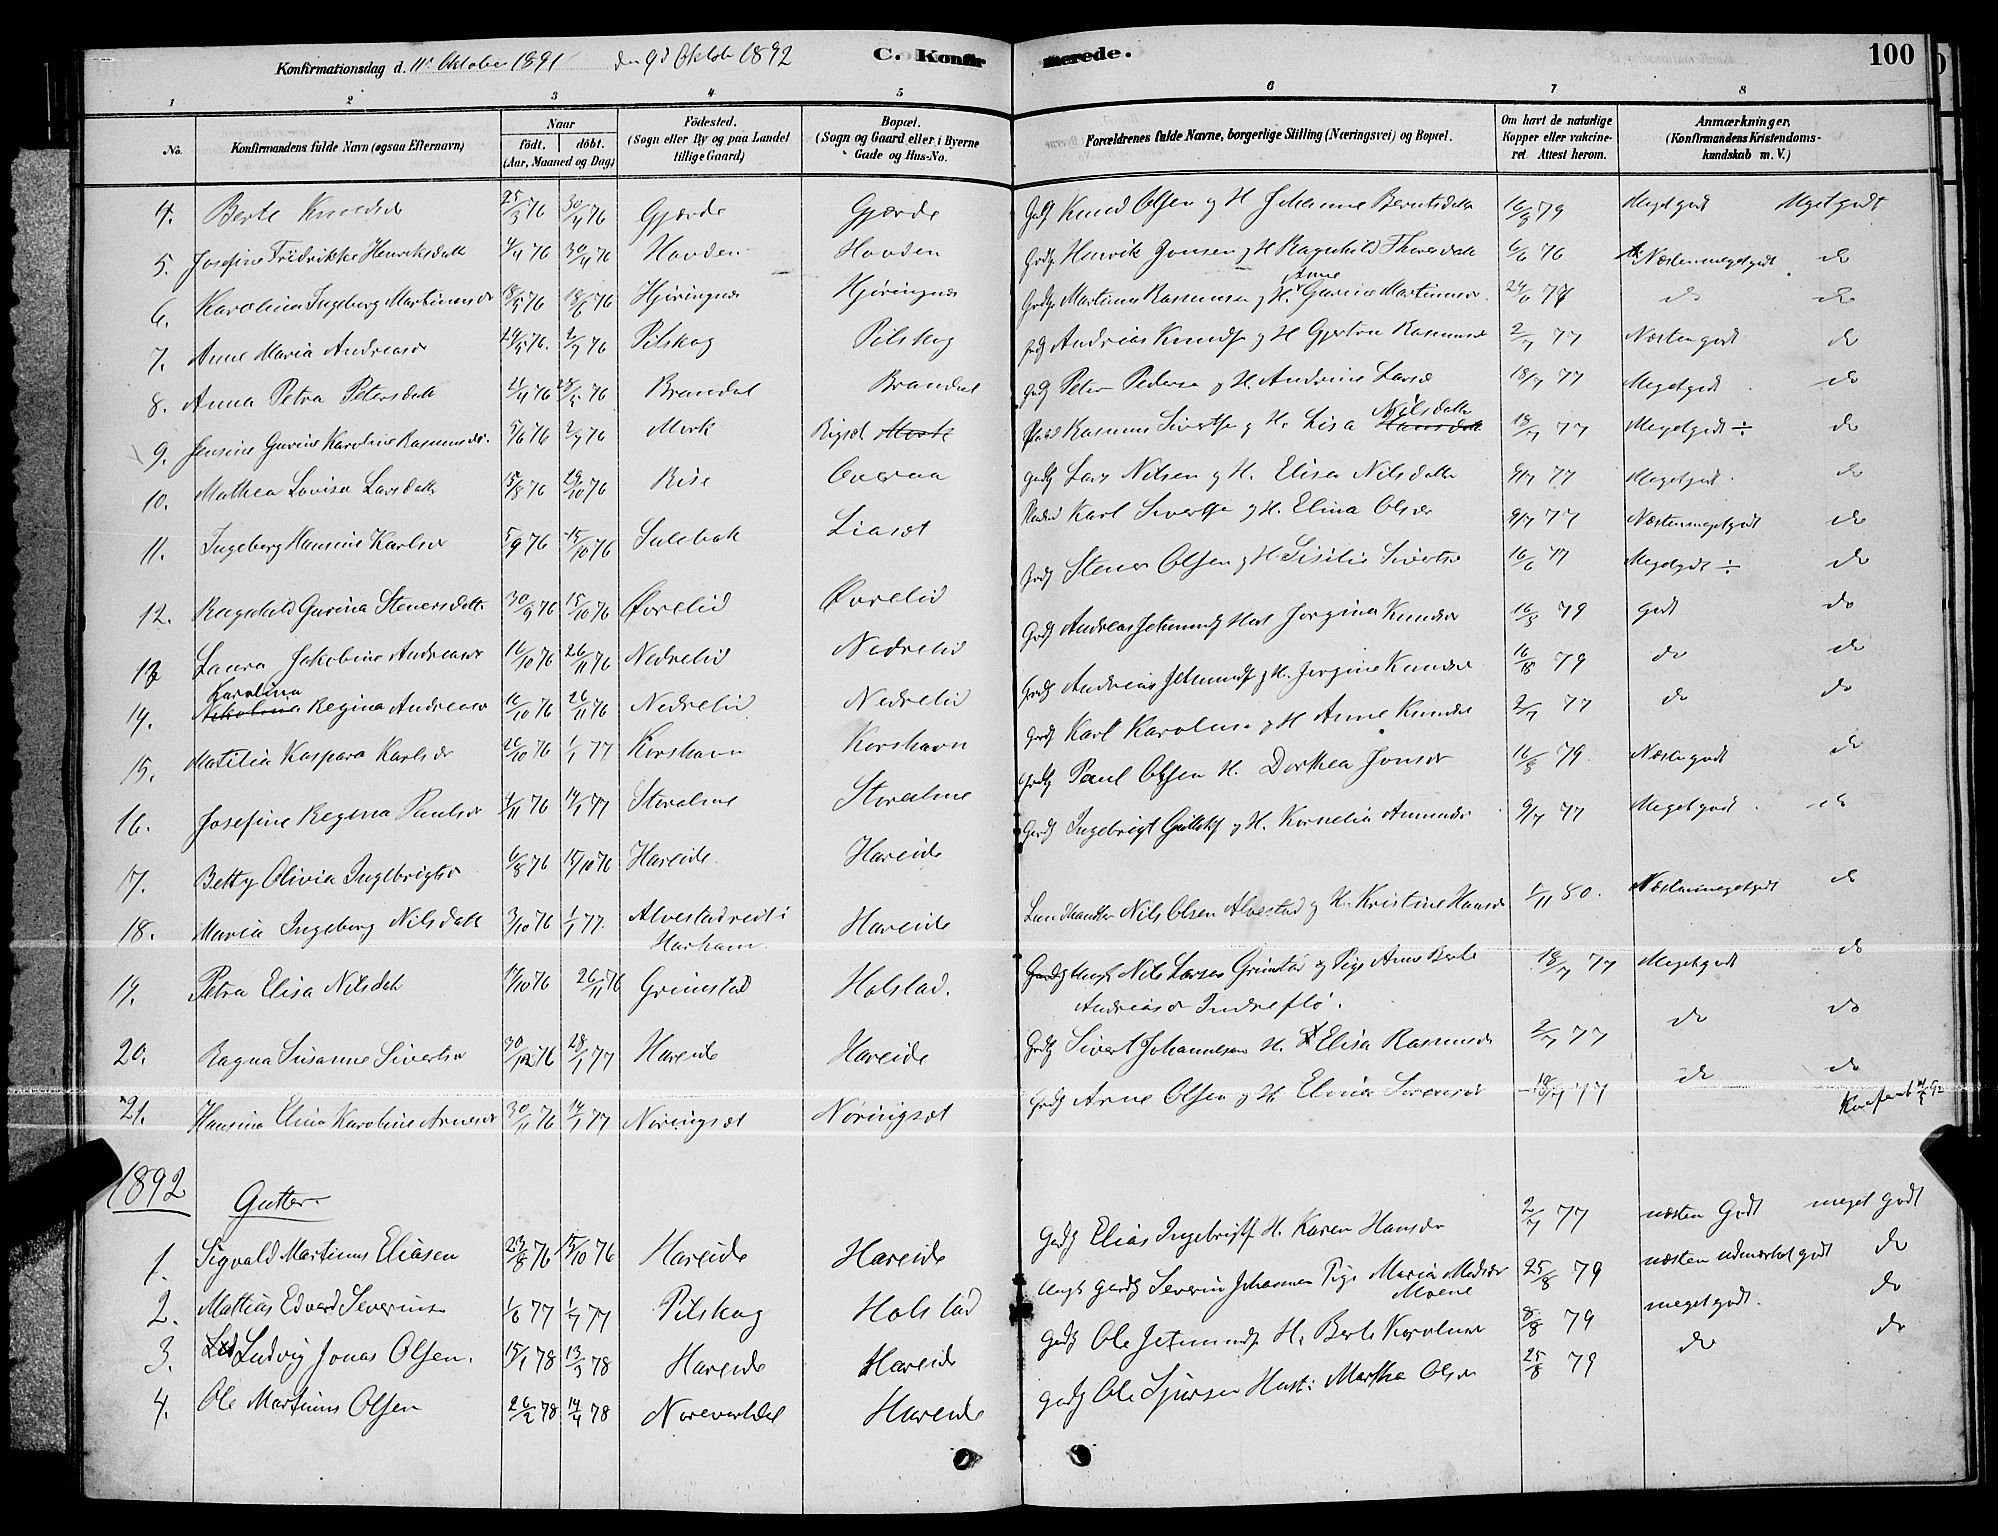 Konfirmationsdag d. 11te Oktober 1891 den 9d Oktob 1892 C. Konfirmerede. 100
1 2 3 4 5 6 7 8
No. Konfirmandens fulde Navn (ogsaa Efternavn) Naar født. døbt. (Aar, Maaned og Dag) Fødested. (Sogn eller By og paa Landet tillige Gaard) Bopæl. (Sogn og Gaard eller i Byerne Gade og Hus-No. Forældrenes fulde Navne, borgerlige Stilling (Næringsvei) og Bopæl. Om havt de naturlige Kopper eller vakcineret. Attest herom. Anmærkninger, (Konfirmandens Kristendomskundskab m. V.)
4. Berte Knudsd 25/3 76 30/4 76 Gjærde Gjærde Gdbr Knud Olsen og H Johanne Berntsdatter 16/8 79 Meget godt Meget godt
5. Josefine Fredrikke Henriksdatt 4/4 76 30/4 76 Hovden Hovden Grdbr Henrik Jonsen og H Ragnhild 6/6 76 Næsten meget godt do
6. Karolina Ingeborg Martinusdr 18/5 76 18/6 76 Hjøringnæs Hjøringnæs Grdbr Martinus Rasmussen og H. Anne Gurine Martinusdr. 24/6 77 do do
7. Anne Maria Andreasdr 24/5 76. 2/7 76 Pilskog Pilskog Andreas Knuds og H Gjertru Rasmusdr 2/7 77 Næsten godt do
8. Anna Petra Petersdatt 21/4 76 28/5 76 Brandal Brandal Peter Peders og H. Andrine Larsd 18/7 77 Meget godt. do
9. Jensine Gurine Karoline Rasmusdr. 5/6 76 2/7 76 Mork Rigsæt Mork Rasmus Sivertse og H. Lisa Nilsdatter Hansdatt 18/7 77 Meget godt ÷ do
10. Mathea Lovisa Larsdatter 15/8 76 29/10 76 Rise Overaa Gdbr Lars Nilsen og H. Elisa Nilsdatter 9/7 77 Meget godt. do
11. Ingeborg Hansine Karlsdr 5/9 76 15/10 76 Sulebak Liaset Karl Sivertse og H. Elina Olsdr 9/7 77 Næsten meget godt do
12. Ragnhild Gurina Steners datter 30/9 76 15/10 76 Øvrelid Øvrelid Gdbr Stener Olsen og H Sisilie Sivertsd 16/6 77 Meget godt ÷ do
13 Laura Jakobine Andreasdr 16/10 76 26/11 76 Nedrelid Nedrelid Grdbr Andreas Jetmunds Hust Jørgina Knudsdr 16/8 79 godt do
14. Karolina Nikoline Regina Andreasdr 16/10 76 26/11 76 Nedrelid Nedrelid Grdbr Andreas Jetmunds og H. Jørgine Knudsd 16/8 79 do do
15. Matilia Kaspara Karlsdr 26/10 76 1/1 77 Korshavn Korshavn Grdbr Karl Karoluse og H Anne Knudsd 2/7 77 do do
16. Josefine Regina Paulsdr 4/11 76 14/1 77 Storalme Storalme Grdbr Paul Olsen H. Dorthea Jonsdr 16/8 79. Næsten godt do
17. Betty Olivia Ingebrigtsdr 6/8 76 15/10 76 Hareide Hareide Gardbr Ingebrigt og H. Kornelia 9/7 77 Meget godt. do
18. Maria Ingeborg Nilsdatt 3/10 76 1/1 77. Alvestad i Harham. Hareide Landhandler Nils Olsen Alvestad og H. Kristine Hansdr 1/11 80. Næsten meget godt do
19. Petra Elisa Nilsdatt 17/10 76 26/11 76 Grimstad Holstad. Gardbr Ungk Nils Larsen Grimstad og Pige Anne Berte 18/7 77 Meget godt do
Andreasdr Indreflø.
20. Ragna Susanne Sivertsdr 30/12 76 28/1 77 Hareide Hareide Grdbr Sivert Johannesen H. Elisa Rasmusdr 2/7 77 do do
21. Hansina Elina Karoline Arnesdr 30/11 76 14/1 77 Nøringset Nøringset Grdbr Arne Olsen og H Elina Sørensdr 18/7 77 do do
1892
Gutter
1. Sigvald Martinus Eliasen 23/8 76 15/10 76 Hareide Hareide Gardbr Elias Ingebrigts H. Karen Hansdr 2/7 77 næsten Godt meget godt
2. Mattias Edvard Severins 1/6 77 1/7 77 Pilskog Holstad Ungk gardbr Severin Johannes Pige Maria Madsdr Moene 25/8 79 næsten udmærket godt do
3. Ludvig Jonas Olsen. 15/1 78 13/3 78 Hareide Hareide gardbr Ole Jetmunds H. Berte Karolusd 8/8 79 meget godt. do
4. Ole Martinus Olsen 26/2 78 14/4 78 Nørevartdal Hareide gardbr Ole Sjursen Hust: Martha Olsdr 25/8 79 do do